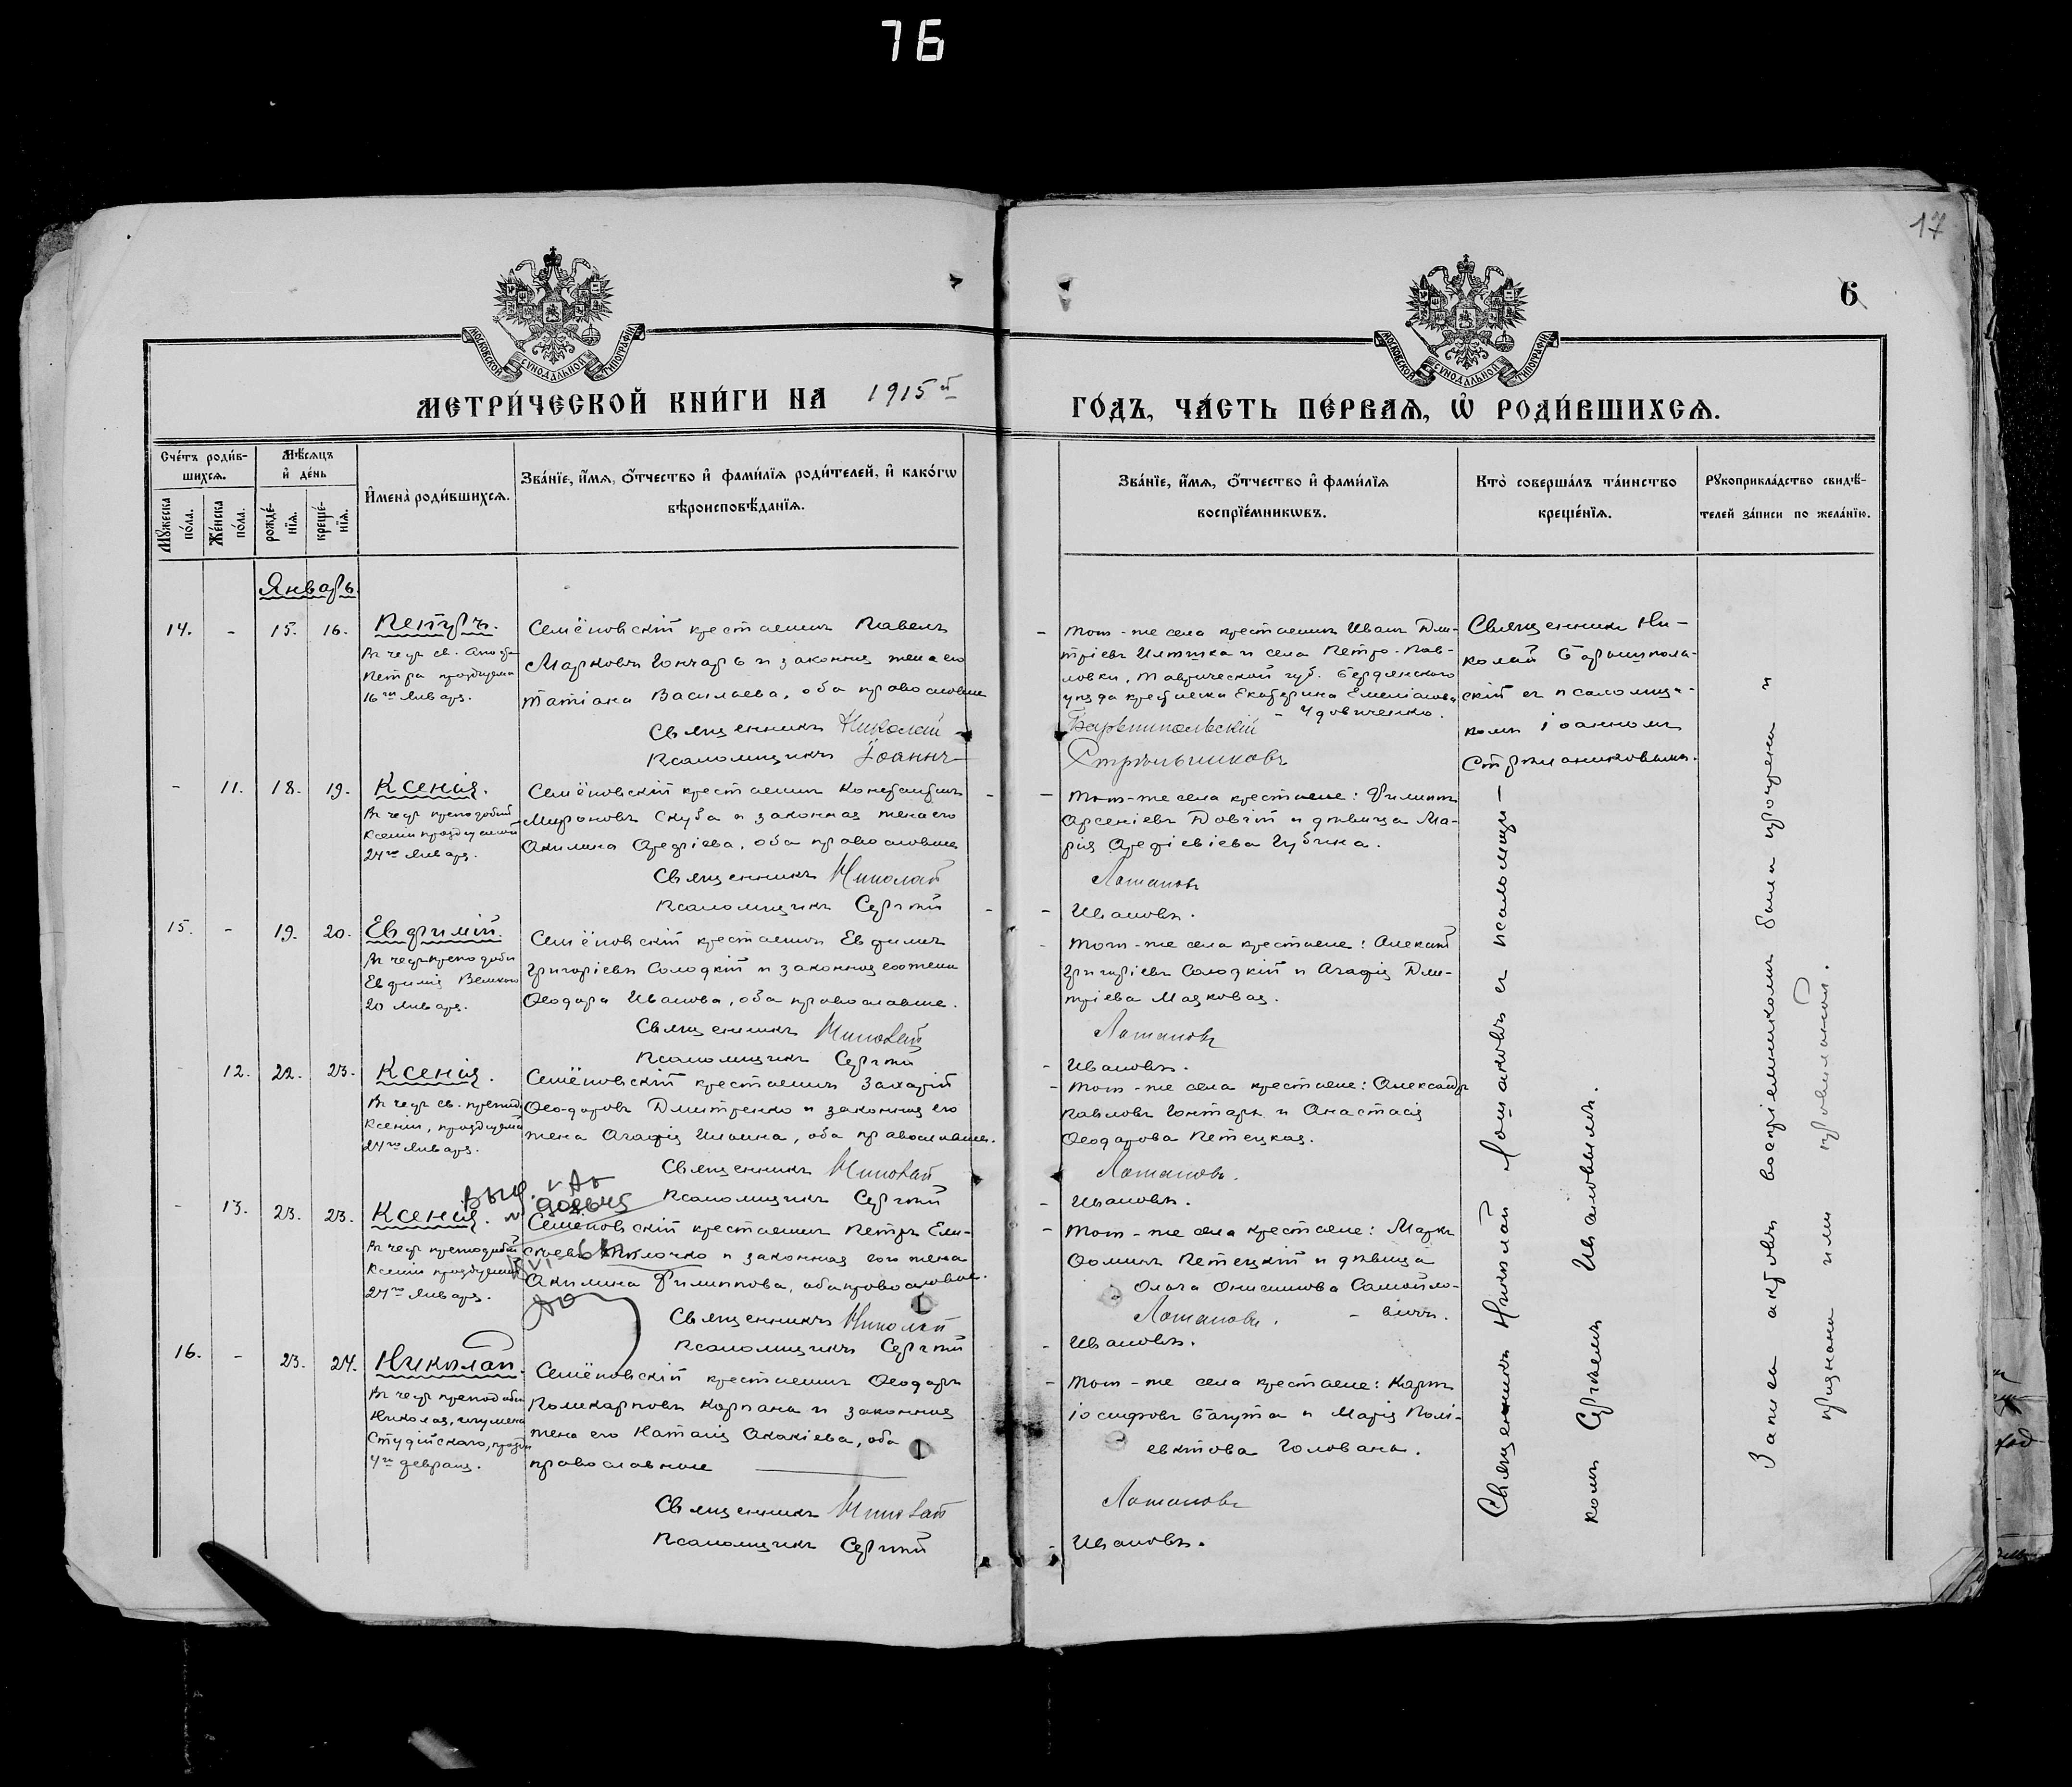 76
17
6
МОСКОВСКОЙ СѴНОДАЛЬНОЙ ТИПОГРАФІИ
МОСКОВСКОЙ СѴНОДАЛЬНОЙ ТИПОГРАФІИ
МЕТРИ́ЧЕСКОЙ КНИ́ГИ НА 1915 й
ГО́ДЪ, ЧА́СТЬ ПЕ́РВАѦ, Ѡ҆ РОДИ́ВШИХСѦ.
Сче́тъ роди́в-
шихсѧ.
Мꙋ́жеска
по́ла.
Же́нска
по́ла.
Мѣ́сѧцъ
и҆ де́нь
рожде́-
нїѧ.
креще́-
нїѧ.
И҆мена̀ роди́вшихсѧ.
Зва́нїе, и҆́мѧ, ѻ҆́тчество и҆ фами́лїѧ роди́телей, и҆ како́гѡ
вѣроисповѣ́данїѧ.
Зва́нїе, и҆́мѧ, ѻ҆́тчество и҆ фами́лїѧ
воспрїе́мникѡвъ.
Кто̀ соверша́лъ та́инство
креще́нїѧ.
Рꙋкоприкла́дство свидѣ́-
телей за́писи по жела́нїю.
Январь.
14. - 15. 16.
Петръ.
Въ честь св. Апост.
Петра празднуема
16 го Января.
Семёновскій крестьянинъ Павелъ
Марковъ Гончарь и законная жена его
Татіана Васильева, оба православные
Священникъ Николай
Псаломщикъ Іоаннъ
- Того-же села крестьянинъ Иванъ Дми-
тріевъ и села Петро-Пав-
ловки, Таврической губ. Бердянскаго
уѣзда крестьянка Екатерина Емеліанова
- Удовиченко.
Барышпольскій
Стрѣльниковъ
Священникъ Ни-
колай Барышполь-
скій съ псаломщи-
комъ Іоанномъ
Стрѣльниковымъ.
- 11. 18. 19.
Ксенія.
Въ честь преподобной
Ксеніи празднуемой
24 го Января.
Семёновскій крестьянинъ Константинъ
Мироновъ Скуба и законная жена его
Акилина Ореѳіева, оба православные
Священникъ Николай
Псаломщикъ Сергѣй
- Того-же села крестьяне: Филиппъ
Арсеніевъ Довгій и дѣвица Ма-
рія Губина.
Лошаковъ
- Ивановъ.
15. - 19. 20.
Евѳимій.
Въ честь преподобн.
Евѳимія Великаго
20 Января.
Семёновскій крестьянинъ Евѳимъ
Григоріевъ Солодкій и законная его жена
Ѳеодора Иванова, оба православные.
Священникъ Николай
Псаломщикъ Сергѣй
- Того-же села крестьяне: Алексѣй
Григоріевъ Солодкій и Агаѳія Дми-
тріева Маяковая.
Лошаковъ
- Ивановъ.
- 12. 22. 23.
Ксенія.
Въ честь св. препод.
Ксеніи, празднуема
24 го Января.
Семёновскій крестьянинъ Захарій
Ѳеодоровъ Дмитренко и законная его
жена Агаѳія Ильина, оба православные.
Священникъ Николай
Псаломщикъ Сергѣй
- Того-же села крестьяне: Александръ
Павловъ Гонтарь и Анастасія
Ѳеодорова Петецкая.
Лошаковъ.
- Ивановъ.
- 13. 23. 23.
Ксенія.
Въ честь преподобной
Ксеніи празднуемой
24 го Января.
Семёновскій крестьянинъ Петръ Ели-
сѣевъ и законная его жена
Акилина Филиппова, оба православные.
Священникъ Николай
Псаломщикъ Сергѣй
- Того-же села крестьяне: Маркъ
Ѳоминъ Петецкій и дѣвица
Ольга Онисимова Самойло-
- вичъ.
Лошаковъ.
- Ивановъ.
16. - 23. 24.
Николай.
Въ честь преподобн.
Николая, игумена
Студійскаго, праздн.
4 го февраля.
Семёновскій крестьянинъ Ѳеодоръ
Поликарповъ Карпань и законная
жена его Наталія Акакіева, оба
православные
Священникъ Николай
Псаломщикъ Сергѣй
- Того-же села крестьяне: Карпъ
Іосифовъ Багута и Марія Полі-
евктова Головань.
Лошаковъ
- Ивановъ.
Священникъ Николай Лошаковъ съ псаломщи-
комъ Сергѣемъ Ивановымъ.
Запись актовъ воспріемникомъ была прочтена и
признана ими правильной.